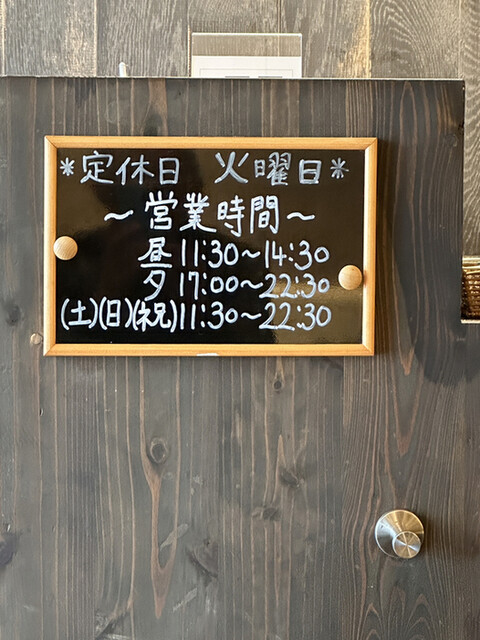 *定休日 火曜日*
~営業時間~
昼 11:30~14:30
夕 17:00~22:30
(土)(日)(祝)11:30~22:30